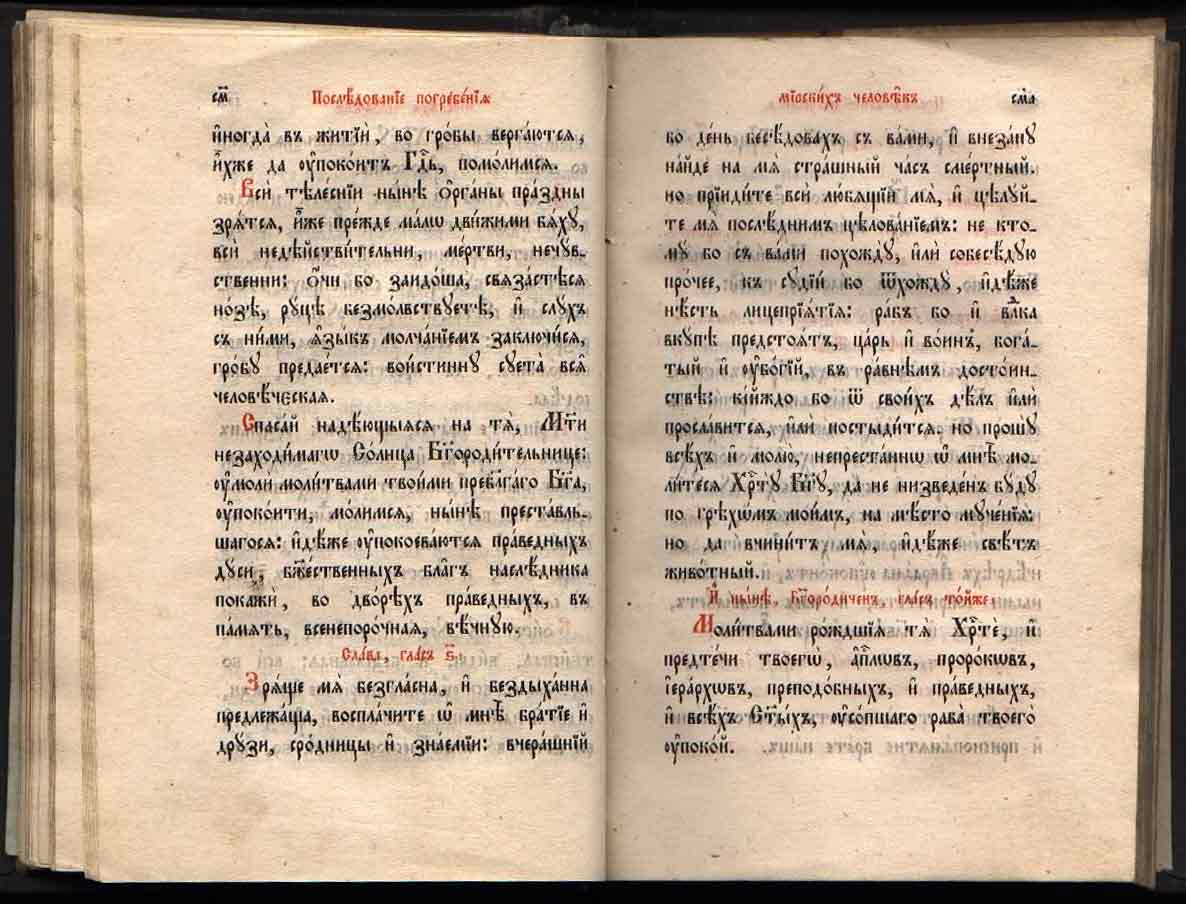 см҃
Послѣ́дованїе погребе́нїѧ
и҆ногда̀ въ житїѝ, во гро́бы верга́ютсѧ,
и҆̀хже да ᲂу҆поко́итъ Гдⷭ҇ь, помо́лимсѧ.
Всѝ тѣле́снїи ны́нѣ ѻ҆рга́ны пра́здны
зрѧ́тсѧ, и҆̀же пре́жде ма́лѡ дви́жими бѧ́хꙋ,
всѝ недѣ́йстви́тельни, ме́ртви, нечꙋ́в-
ственни: ѻ҆́чи бо заидо́ша, свѧза́стѣсѧ
но́зѣ, рꙋ́цѣ безмо́лвствꙋетѣ, и҆ слꙋ́хъ
съ ни́ми, ѧ҆зы́къ молча́нїемъ заключи́сѧ,
гро́бꙋ предае́тсѧ: вои́стиннꙋ сꙋета̀ всѧ̑
человѣ́ческаѧ.
Спаса́й надѣ́ющыѧсѧ на тѧ̀, Мт҃и
незаходи́магѡ Со́лнца Бг҃ороди́тельнице:
ᲂу҆молѝ моли́твами твои́ми пребл҃га́го Бг҃а,
ᲂу҆поко́ити, мо́лимсѧ, ны́нѣ преста́вль-
шагосѧ: и҆дѣ́же ᲂу҆покоева́ютсѧ пра́ведныхъ
дꙋ́си, бж҃е́ственныхъ бла̑гъ наслѣ́дника
покажѝ, во дво́рѣхъ пра́ведныхъ, въ
па́мѧть, всенепоро́чнаѧ, вѣ́чнꙋю.
Сла́ва, гла́съ ѕ҃.
Зрѧ́ще мѧ̀ безгла́сна, и҆ бездыха́нна
предлежа́ща, воспла́чите ѡ҆ мнѣ̀ бра́тїе и҆
дрꙋ́зи, сро́дницы и҆ зна́емїи: вчера́шнїй
мїрски́хъ человѣ̑къ
сма҃
во де́нь бесѣ́довахъ съ ва́ми, и҆ внеза́пꙋ
на́йде на мѧ̀ стра́шный ча́съ сме́ртный.
но прїиди́те всѝ лю́бѧщїи мѧ̀, и҆ цѣлꙋ́й-
те мѧ̀ послѣ́днимъ цѣлова́нїемъ: не кто-
мꙋ̀ бо съ ва́ми похождꙋ̀, и҆лѝ собесѣ́дꙋю
про́чее, къ сꙋдїѝ бо ѿхождꙋ̀, и҆дѣ́же
нѣ́сть лицепрїѧ́тїѧ: ра́бъ бо и҆ влⷣка
вкꙋ́пѣ предстоѧ́тъ, ца́рь и҆ во́инъ, бога́-
тый и҆ ᲂу҆бо́гїй, въ ра́внѣмъ досто́ин-
ствѣ: кі́йждо бо ѿ свои́хъ дѣ́лъ и҆лѝ
просла́витсѧ, и҆лѝ постыди́тсѧ. но прошꙋ̀
всѣ́хъ и҆ молю̀, непреста́ннѡ ѡ҆ мнѣ̀ мо-
ли́тесѧ Хрⷭ҇тꙋ̀ Бг҃ꙋ, да не низведе́нъ бꙋ́дꙋ
по грѣхѡ́мъ мои̑мъ, на мѣ́сто мꙋче́нїѧ:
но да вчини́тъ мѧ̀, и҆дѣ́же свѣ́тъ
живо́тный.
И҆ ны́нѣ, Бг҃оро́диченъ, гла́съ то́йже.
Моли́твами ро́ждшїѧ тѧ̀ Хрⷭ҇тѐ, и҆
предте́чи твоегѡ̀, а҆пⷭ҇лѡвъ, проро́кѡвъ,
і҆ера́рхѡвъ, преподо́бныхъ, и҆ пра́ведныхъ,
и҆ всѣ́хъ Ст҃ы́хъ, ᲂу҆со́пшаго раба̀ твоего̀
ᲂу҆поко́й.